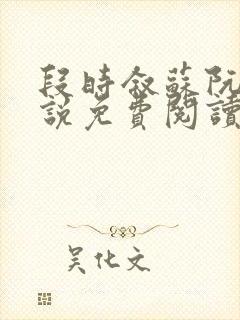 段時叙蘇阮
說免費閱讀
吴化文